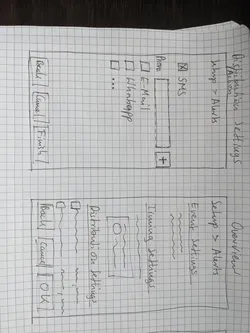 Distribution Settings
Setup > Alerts
SMS
+
E-Mail
Whatsapp
...
Back Cancel Finish
Overview
Setup > Alerts
Event Settings
Timing Settings
Distribution Settings
Back Cancel OK